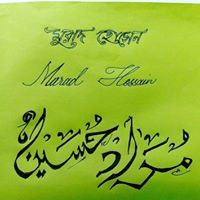 মুরাদ হোসেন
Marad Hossain
مراد حسين